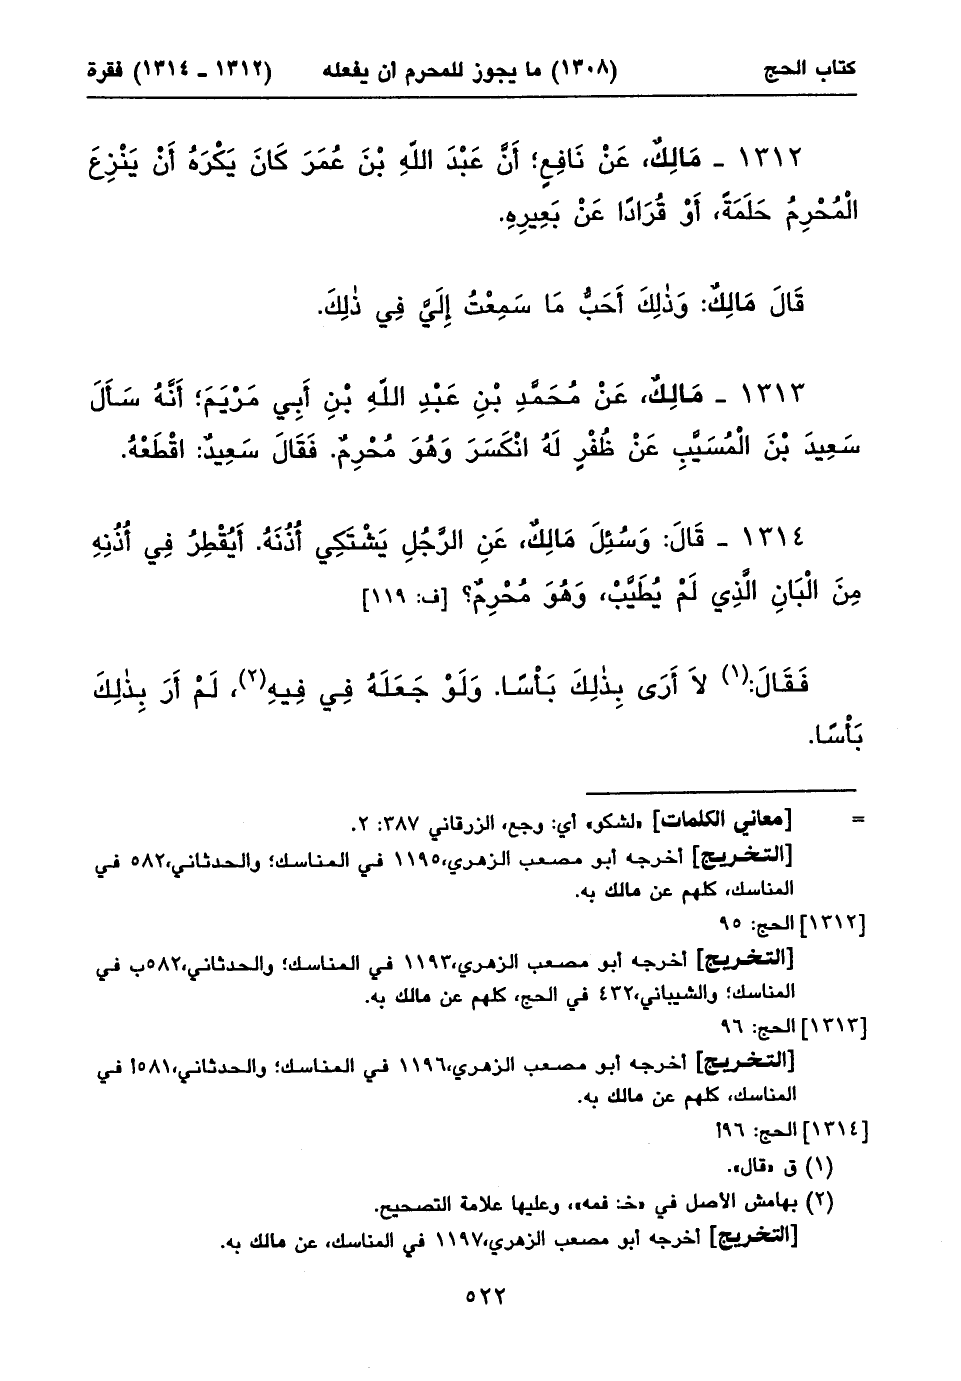 كتاب الحج (١٣٠٨) ما يجوز للمحرم أن يفعله (١٣١٢ ـ ١٣١٤) فقرة
١٣١٢ ـ مَالِكٌ، عَنْ نَافِعٍ؛ أَنَّ عَبْدَ اللّهِ بْنَ عُمَرَ كَانَ يَكْرَهُ أَنْ يَنْزِعَ
الْمُحْرِمُ حَلَمَةً، أَوْ قُرَادًا عَنْ بَعِيرِهِ.
قَالَ مَالِكٌ: وَذٰلِكَ أَحَبُّ مَا سَمِعْتُ إِلَيَّ فِي ذٰلِكَ.
١٣١٣ ـ مَالِكٌ، عَنْ مُحَمَّدِ بْنِ عَبْدِ اللّهِ بْنِ أَبِي مَرْيَمَ؛ أَنَّهُ سَأَلَ
سَعِيدَ بْنَ الْمُسَيَّبِ عَنْ ظُفْرٍ لَهُ انْكَسَرَ وَهُوَ مُحْرِمٌ. فَقَالَ سَعِيدٌ: اقْطَعْهُ.
١٣١٤ ـ قَالَ: وَسُئِلَ مَالِكٌ، عَنِ الرَّجُلِ يَشْتَكِي أُذُنَهُ. أَيُقْطِرُ فِي أُذُنِهِ
مِنَ الْبَانِ الَّذِي لَمْ يُطَيَّبْ، وَهُوَ مُحْرِمٌ؟ [ف: ١١٩]
فَقَالَ:(١) لاَ أَرَى بِذٰلِكَ بَأْسًا. وَلَوْ جَعَلَهُ فِي فِيهِ(٢)، لَمْ أَرَ بِذٰلِكَ
بَأْسًا.
= [معاني الكلمات] «لشكو» أي: وجع، الزرقاني ٣٨٧: ٢.
[التخريج] أخرجه أبو مصعب الزهري، ١١٩٥ في المناسك؛ والحدثاني، ٥٨٢ في
المناسك، كلهم عن مالك به.
[١٣١٢] الحج: ٩٥
[التخريج] أخرجه أبو مصعب الزهري، ١١٩٣ في المناسك؛ والحدثاني، ٥٨٢ب في
المناسك؛ والشيباني، ٤٣٢ في الحج، كلهم عن مالك به.
[١٣١٣] الحج: ٩٦
[التخريج] أخرجه أبو مصعب الزهري، ١١٩٦ في المناسك؛ والحدثاني، ٥٨١أ في
المناسك، كلهم عن مالك به.
[١٣١٤] الحج: ٩٦أ
(١) ق «قال».
(٢) بهامش الأصل في «خـ: فمه»، وعليها علامة التصحيح.
[التخريج] أخرجه أبو مصعب الزهري، ١١٩٧ في المناسك، عن مالك به.
٥٢٢